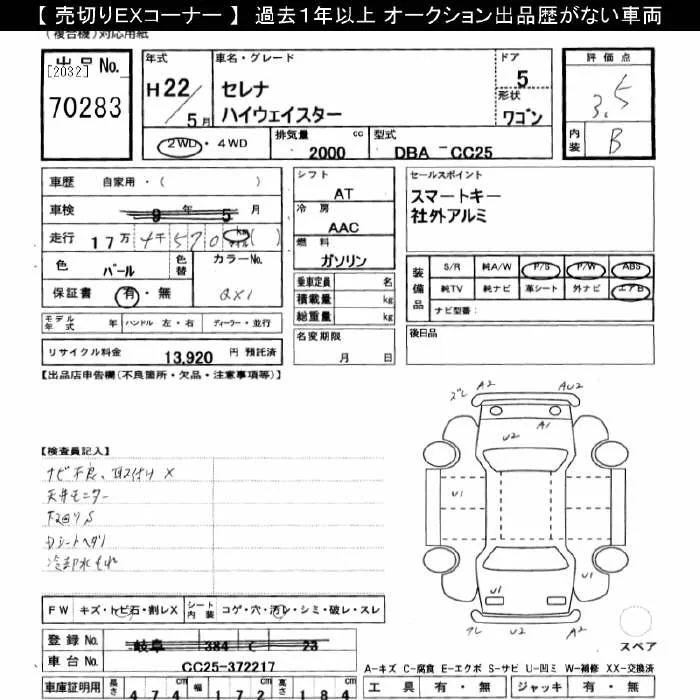 【 売切りEXコーナー 】 過去1年以上 オークション出品歴がない車両
(複合機)対応用紙
出品 No.
[2032]
70283
年式
H22/5月
車名・グレード
セレナ
ハイウェイスター
ドア
5
形状
ワゴン
評価点
3.5
内装
B
2WD・4WD
排気量 cc
2000
型式
DBA -CC25
車歴 自家用・( )
車検 9 年 5 月
走行 17万 4千 570 km ( )
色 パール 色替 カラーNo. QX1
保証書 有・無
モデル年式 年 ハンドル 左・右 ディーラー・並行
リサイクル料金 13,920 円 預託済
シフト
AT
冷房
AAC
燃料
ガソリン
乗車定員 名
積載量 kg
総重量 kg
名変期限
月 日
セールスポイント
スマートキー
社外アルミ
装備品
S/R 純A/W P/S P/W ABS
純TV 純ナビ 革シート 外ナビ エアB
ナビ型番:
後日品
【出品店申告欄(不良箇所・欠品・注意事項等)】
【検査員記入】
ナビ不良、取付け X
天井モニター
下回りS
Dシートヘタリ
冷却水もれ
ズレ A2 AU2
U2 A1
U1
U1
U1 U1
A2 A2
FW キズ・トビ石・割レX シート内装 コゲ・穴・汚レ・シミ・破レ・スレ
登録 No. 岐阜 384 C 23
車台 No. CC25-372217
車庫証明用 長さ 474 cm 幅 172 cm 高さ 184 cm
スペア
A-キズ C-腐食 E-エクボ S-サビ U-凹ミ W-補修 XX-交換済
工具 有・無 ジャッキ 有・無